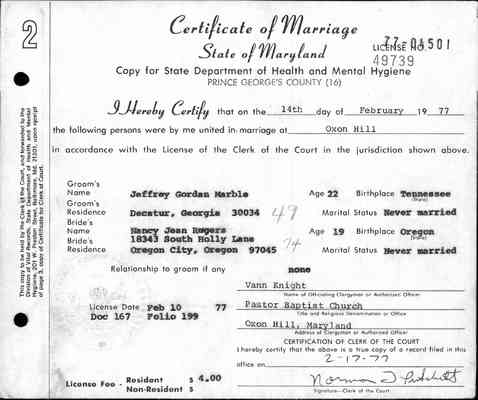 Certificate of Marriage
State of Maryland
77-01501
LICENSE NO.
49739
Copy for State Department of Health and Mental Hygiene
PRINCE GEORGE'S COUNTY (16)
2
I Hereby Certify that on the 14th day of February 19 77
the following persons were by me united in marriage at Oxon Hill
in accordance with the License of the Clerk of the Court in the jurisdiction shown above.
Groom's Name Jeffrey Gordan Marble Age 22 Birthplace Tennessee
(State)
Groom's Residence Decatur, Georgia 30034 49 Marital Status Never married
Bride's Name Nancy Jean Rogers Age 19 Birthplace Oregon
(State)
18343 South Holly Lane 74
Bride's Residence Oregon City, Oregon 97045 Marital Status Never married
Relationship to groom if any none
Vann Knight
Name of Officiating Clergyman or Authorized Officer
License Date Feb 10 77 Pastor Baptist Church
Title and Religious Denomination or Office
Doc 167 Folio 199
Oxon Hill, Maryland
Address of Clergyman or Authorized Officer
CERTIFICATION OF CLERK OF THE COURT
I hereby certify that the above is a true copy of a record filed in this
office on 2-17-77
License Fee - Resident $ 4.00
Non-Resident $
Norman L Pritchett
Signature—Clerk of the Court
This copy to be held by the Clerk of the Court, and forwarded to the
Division of Vital Records, State Department of Health and Mental
Hygiene, 201 W. Preston Street, Baltimore, Md. 21201, upon receipt
of page 3, copy of Certificate for Clerk of Court.